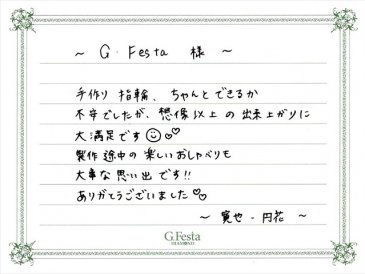 ～ G・Festa 様 ～
手作り指輪、ちゃんとできるか
不安でしたが、想像以上の出来上がりに
大満足です
製作途中の楽しいおしゃべりも
大事な思い出です!!
ありがとうございました
～ 寛也・円花 ～
G.Festa
DIAMOND